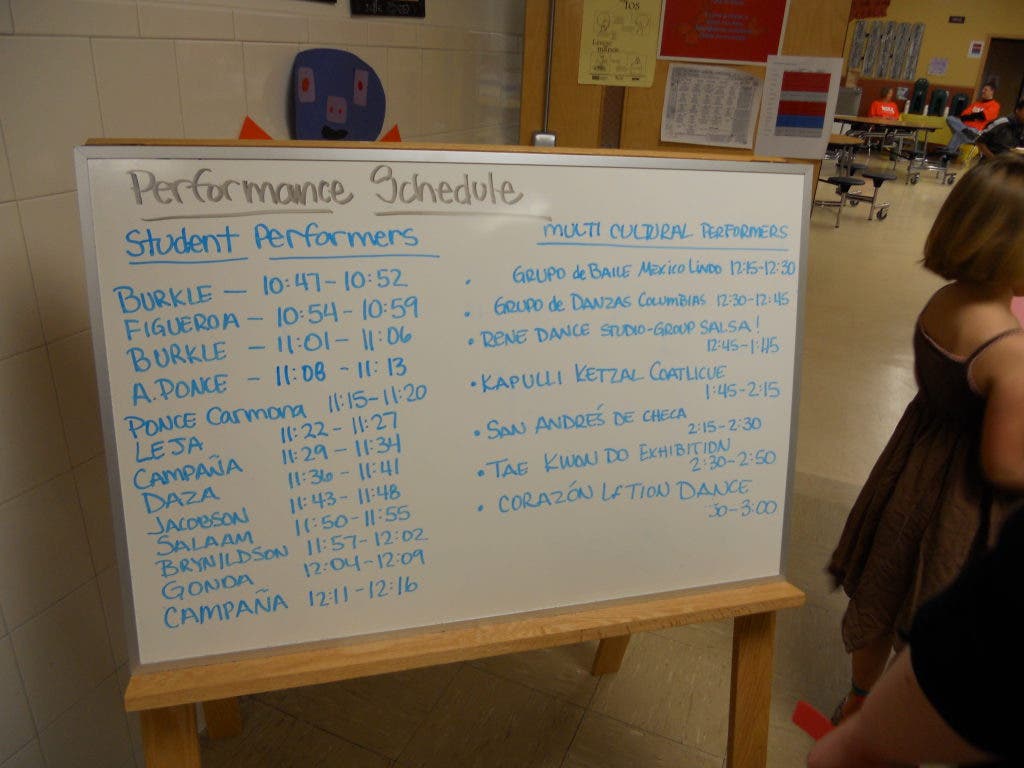 Performance Schedule
Student Performers
BURKLE — 10:47 - 10:52
FIGUEROA — 10:54 - 10:59
BURKLE — 11:01 - 11:06
A. PONCE - 11:08 - 11:13
PONCE Carmona 11:15 - 11:20
LEJA 11:22 - 11:27
CAMPAÑA 11:29 - 11:34
DAZA 11:36 - 11:41
JACOBSON 11:43 - 11:48
SALAAM 11:50 - 11:55
BRYNILDSON 11:57 - 12:02
GONDA 12:04 - 12:09
CAMPAÑA 12:11 - 12:16
MULTI CULTURAL PERFORMERS
• GRUPO de BAILE Mexico Lindo 12:15-12:30
• GRUPO de DANZAS COLUMBIAS 12:30-12:45
• RENE DANCE STUDIO-GROUP SALSA!
12:45-1:45
• KAPULLI KETZAL COATLICUE
1:45-2:15
• SAN ANDRES DE CHECA
2:15-2:30
• TAE KWON DO EXHIBITION
2:30-2:50
• CORAZÓN LATION DANCE
:30-3:00